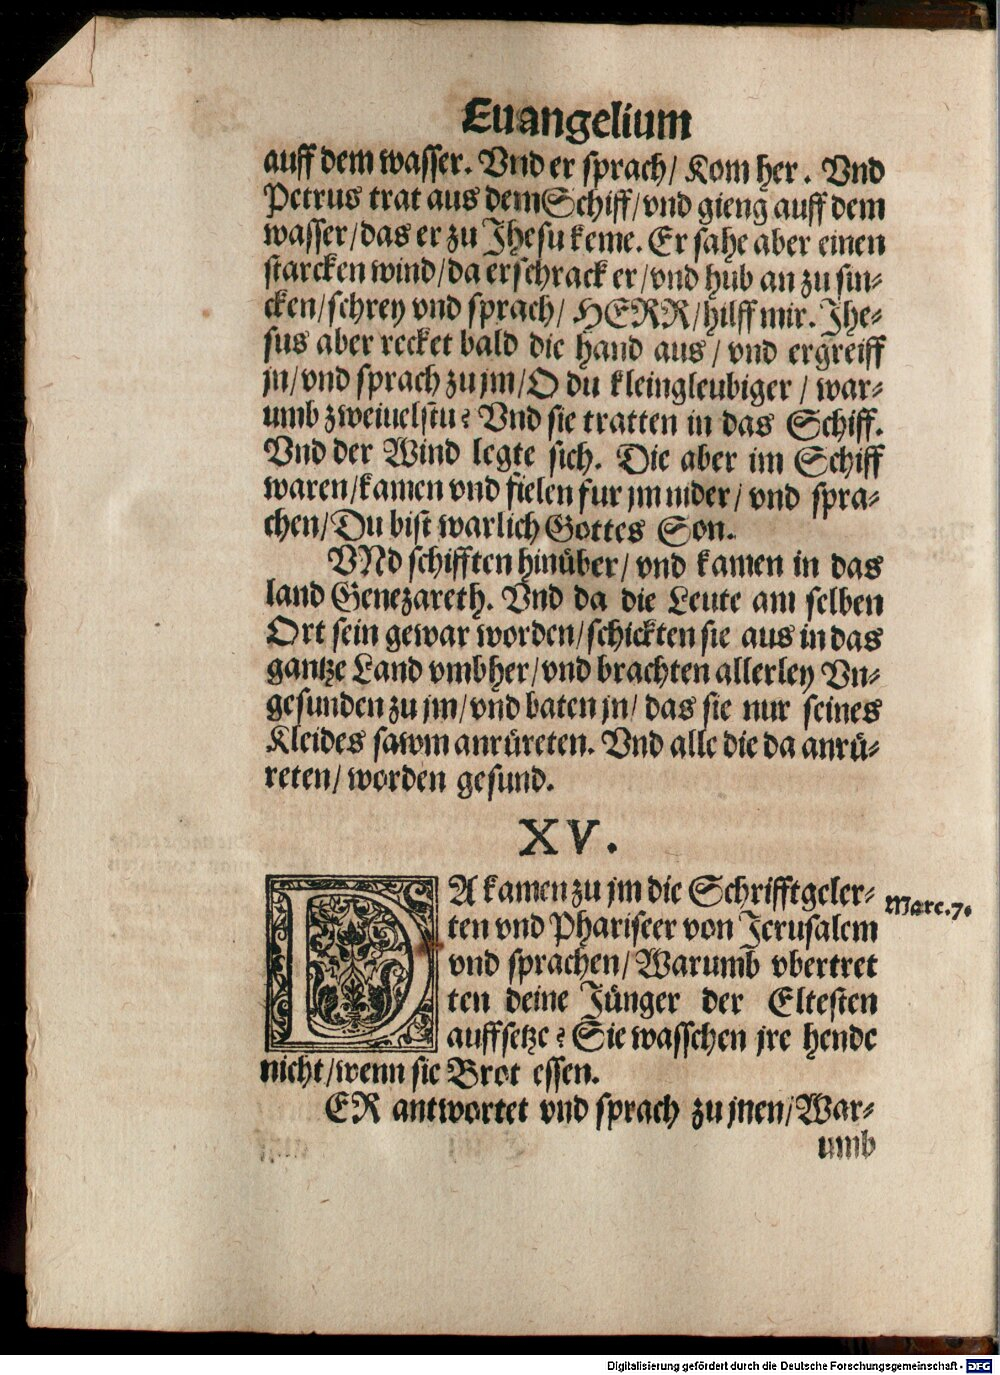 Euangelium
auff dem wasser. Vnd er sprach/ Kom her. Vnd
Petrus trat aus dem Schiff/ vnd gieng auff dem
wasser/ das er zu Jhesu keme. Er sahe aber einen
starcken wind/ da erschrack er/ vnd hub an zu sin-
cken/ schrey vnd sprach/ HERR/ hilff mir. Jhe-
sus aber recket bald die hand aus/ vnd ergreiff
jn/ vnd sprach zu jm/ O du kleingleubiger/ war-
umb zweiuelstu? Vnd sie tratten in das Schiff.
Vnd der Wind legte sich. Die aber im Schiff
waren/ kamen vnd fielen fur jm nider/ vnd spra-
chen/ Du bist warlich Gottes Son.
VNd schifften hinüber/ vnd kamen in das
land Genezareth. Vnd da die Leute am selben
Ort sein gewar worden/ schickten sie aus in das
gantze Land vmbher/ vnd brachten allerley Vn-
gesunden zu jm/ vnd baten jn/ das sie nur seines
Kleides sawm anrüreten. Vnd alle die da anrü-
reten/ worden gesund.
XV.
DA kamen zu jm die Schrifftgeler-
Marc.7.
ten vnd Phariseer von Jerusalem
vnd sprachen/ Warumb vbertret
ten deine Jünger der Eltesten
auffsetze? Sie wasschen jre hende
nicht/ wenn sie Brot essen.
ER antwortet vnd sprach zu jnen/ War-
umb
Digitalisierung gefördert durch die Deutsche Forschungsgemeinschaft - DFG